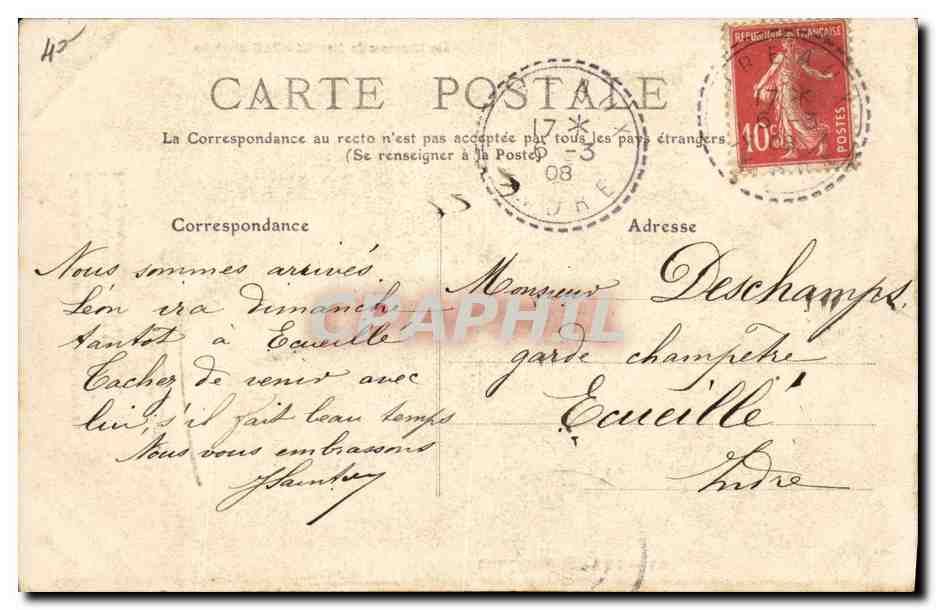 45
CARTE POSTALE
La Correspondance au recto n'est pas acceptée par tous les pays étrangers
(Se renseigner à la Poste)
17 *
6 -3
08
INDRE
RÉPUBLIQUE FRANÇAISE
10c
POSTES
Correspondance
Nous sommes arrivés.
Léon ira dimanche
tantot à Ecueillé
Tachez de venir avec
lui, s'il fait beau temps
Nous vous embrassons
Adresse
Monsieur Deschamps,
garde champetre
Ecueillé
Indre
CPAPHIL